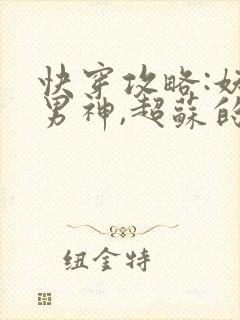 快穿攻略:妖
男神,超蘇的
纽金特